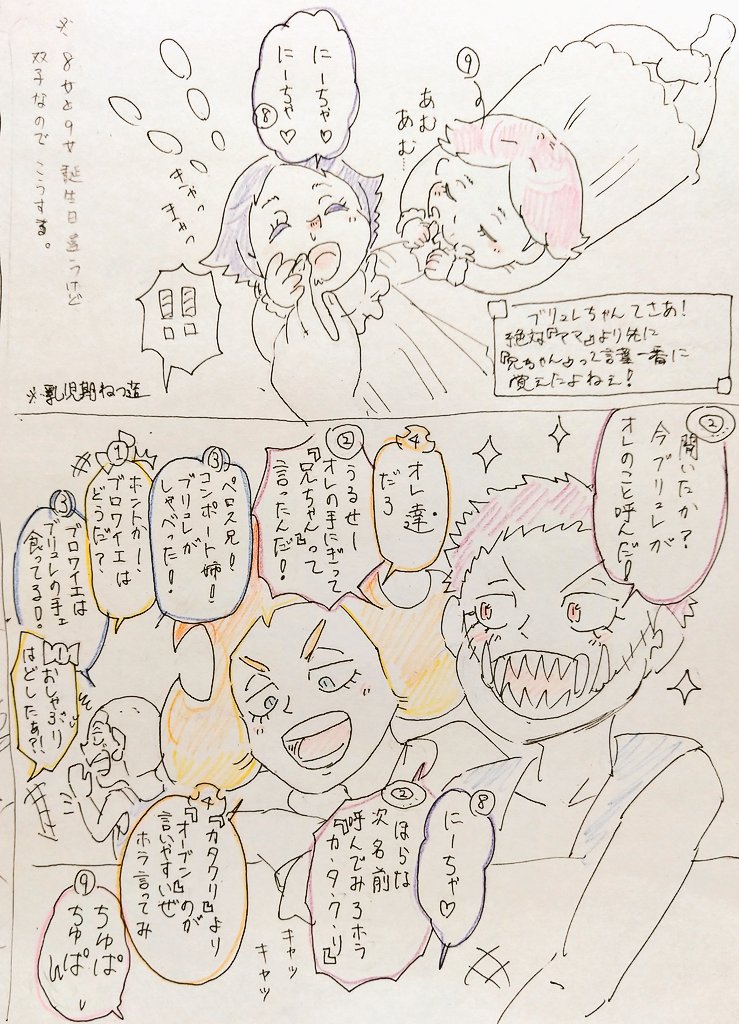 ※8女と9女誕生日違うけど
双子なので こうする。
⑧
にーちゃ♡
にーちゃ♡
⑨
あむ
あむ…
キャッ
キャッ
!!
※乳児期ねつ造
ブリュレちゃんてさあ!
絶対『ママ』より先に
『兄ちゃん』って言葉一番に
覚えたよねぇ!
②
聞いたか?
今ブリュレが
オレのこと呼んだ!
④
オレ達.
だろ
②
うるせー
オレの手にぎって
『兄ちゃん』って
言ったんだ!
③
ペロス兄!
コンポート姉!
ブリュレが
しゃべった!
①
ホントかー!
ブロワイエは
どうだ?
③
ブロワイエは
ブリュレの手ェ
食ってる!。
1
おしゃぶり
はどしたぁ?!
⑧
にーちゃ♡
②
ほらな
次名前
呼んでみろホラ
『カ・タ・ク・リ』
④
『カタクリ』より
『オーブン』のが
言いやすいぜ
ホラ言ってみ
キャッ
キャッ
⑨
ちゅぱ
ちゅぱ